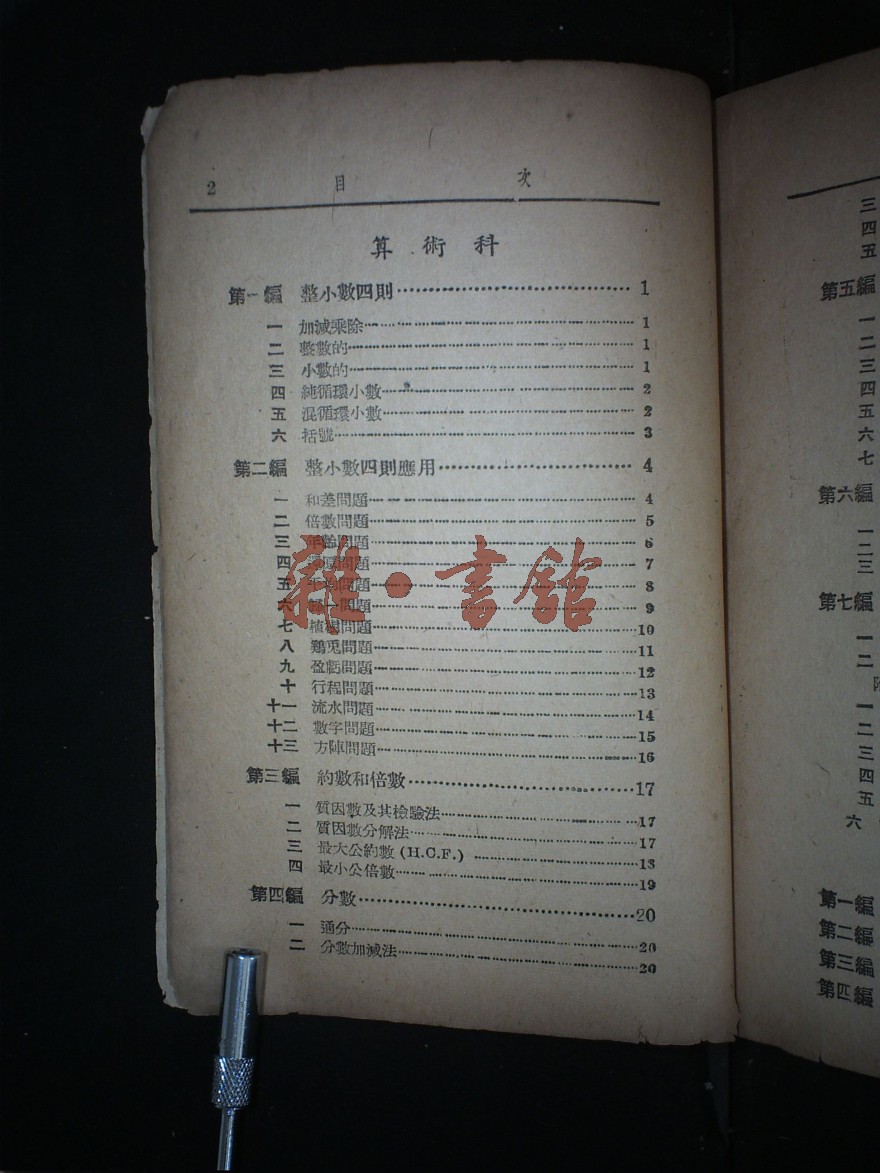 2 目 次
算術科
第一編 整小數四則 1
一 加減乘除 1
二 整數的 1
三 小數的 1
四 純循環小數 2
五 混循環小數 2
六 括號 3
第二編 整小數四則應用 4
一 和差問題 4
二 倍數問題 5
三 年齡問題 6
四 問題 7
五 問題 8
六 一問題 9
七 植樹問題 10
八 鷄兎問題 11
九 盈虧問題 12
十 行程問題 13
十一 流水問題 14
十二 數字問題 15
十三 方陣問題 16
第三編 約數和倍數 17
一 質因數及其檢驗法 17
二 質因數分解法 17
三 最大公約數 (H.C.F.) 18
四 最小公倍數 19
第四編 分數 20
一 通分 20
二 分數加減法 20
雜·書館
三
四
五
第五編
一
二
三
四
五
六
七
第六編
一
二
三
第七編
一
二
一
二
三
四
五
六
第一編
第二編
第三編
第四編